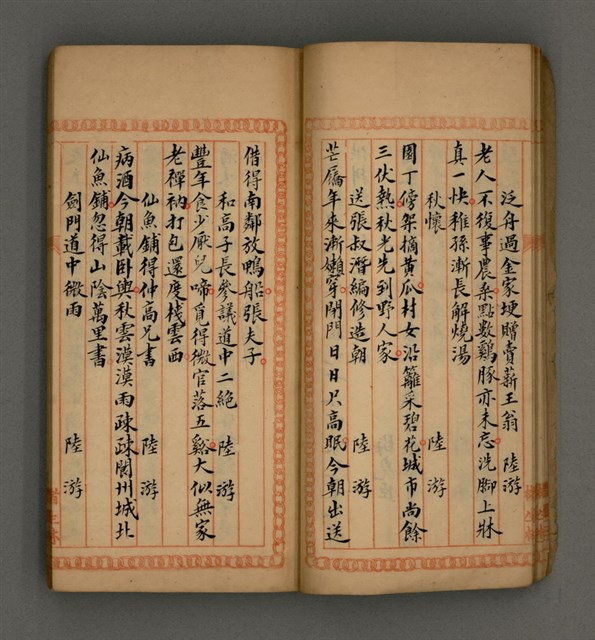 泛舟過金家埂贈賣薪王翁　陸游
老人不復事農桑點數雞豚亦未忘洗脚上牀
真一快稚孫漸長解燒湯
秋懷　陸游
園丁傍架摘黃瓜村女沿籬采碧花城市尚餘
三伏熱秋光先到野人家
送張叔潛編修造朝　陸游
芒屩年來漸嬾穿閉門日日只高眠今朝出送
借得南鄰放鴨船張夫子
和高子長參議道中二絕　陸游
豐年食少厭兒啼覓得微官落五谿大似無家
老禪衲打包還度棧雲西
仙魚鋪得仲高兄書　陸游
病酒今朝載臥輿秋雲漠漠雨疎疎閬州城北
仙魚鋪忽得山陰萬里書
劍門道中微雨　陸游